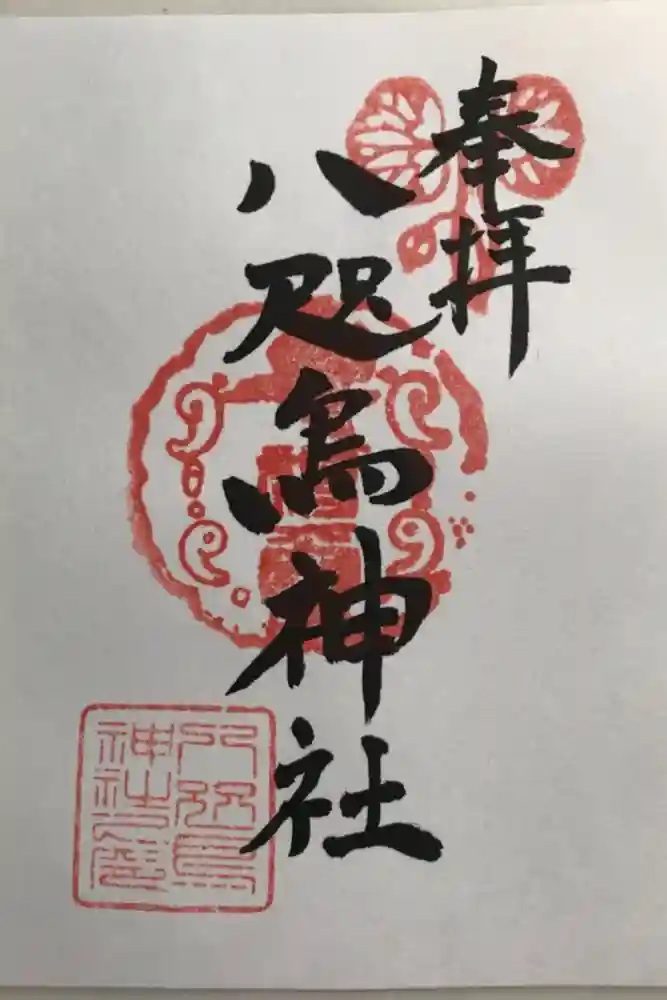 奉拝
八咫烏神社
八咫烏
神社